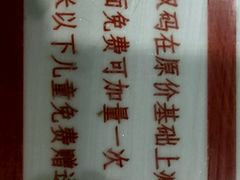 码在原价基础上
面免费可加量一次
米以下儿童免费赠送